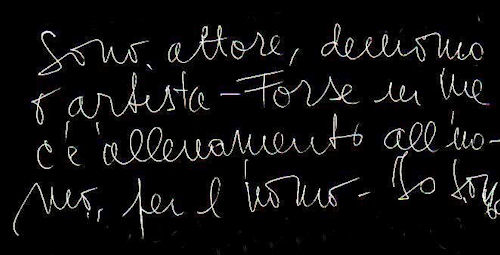 Sono attore, demonio
o artista - Forse in me
c'è allenamento all'uo-
mo, per l'uomo - Io